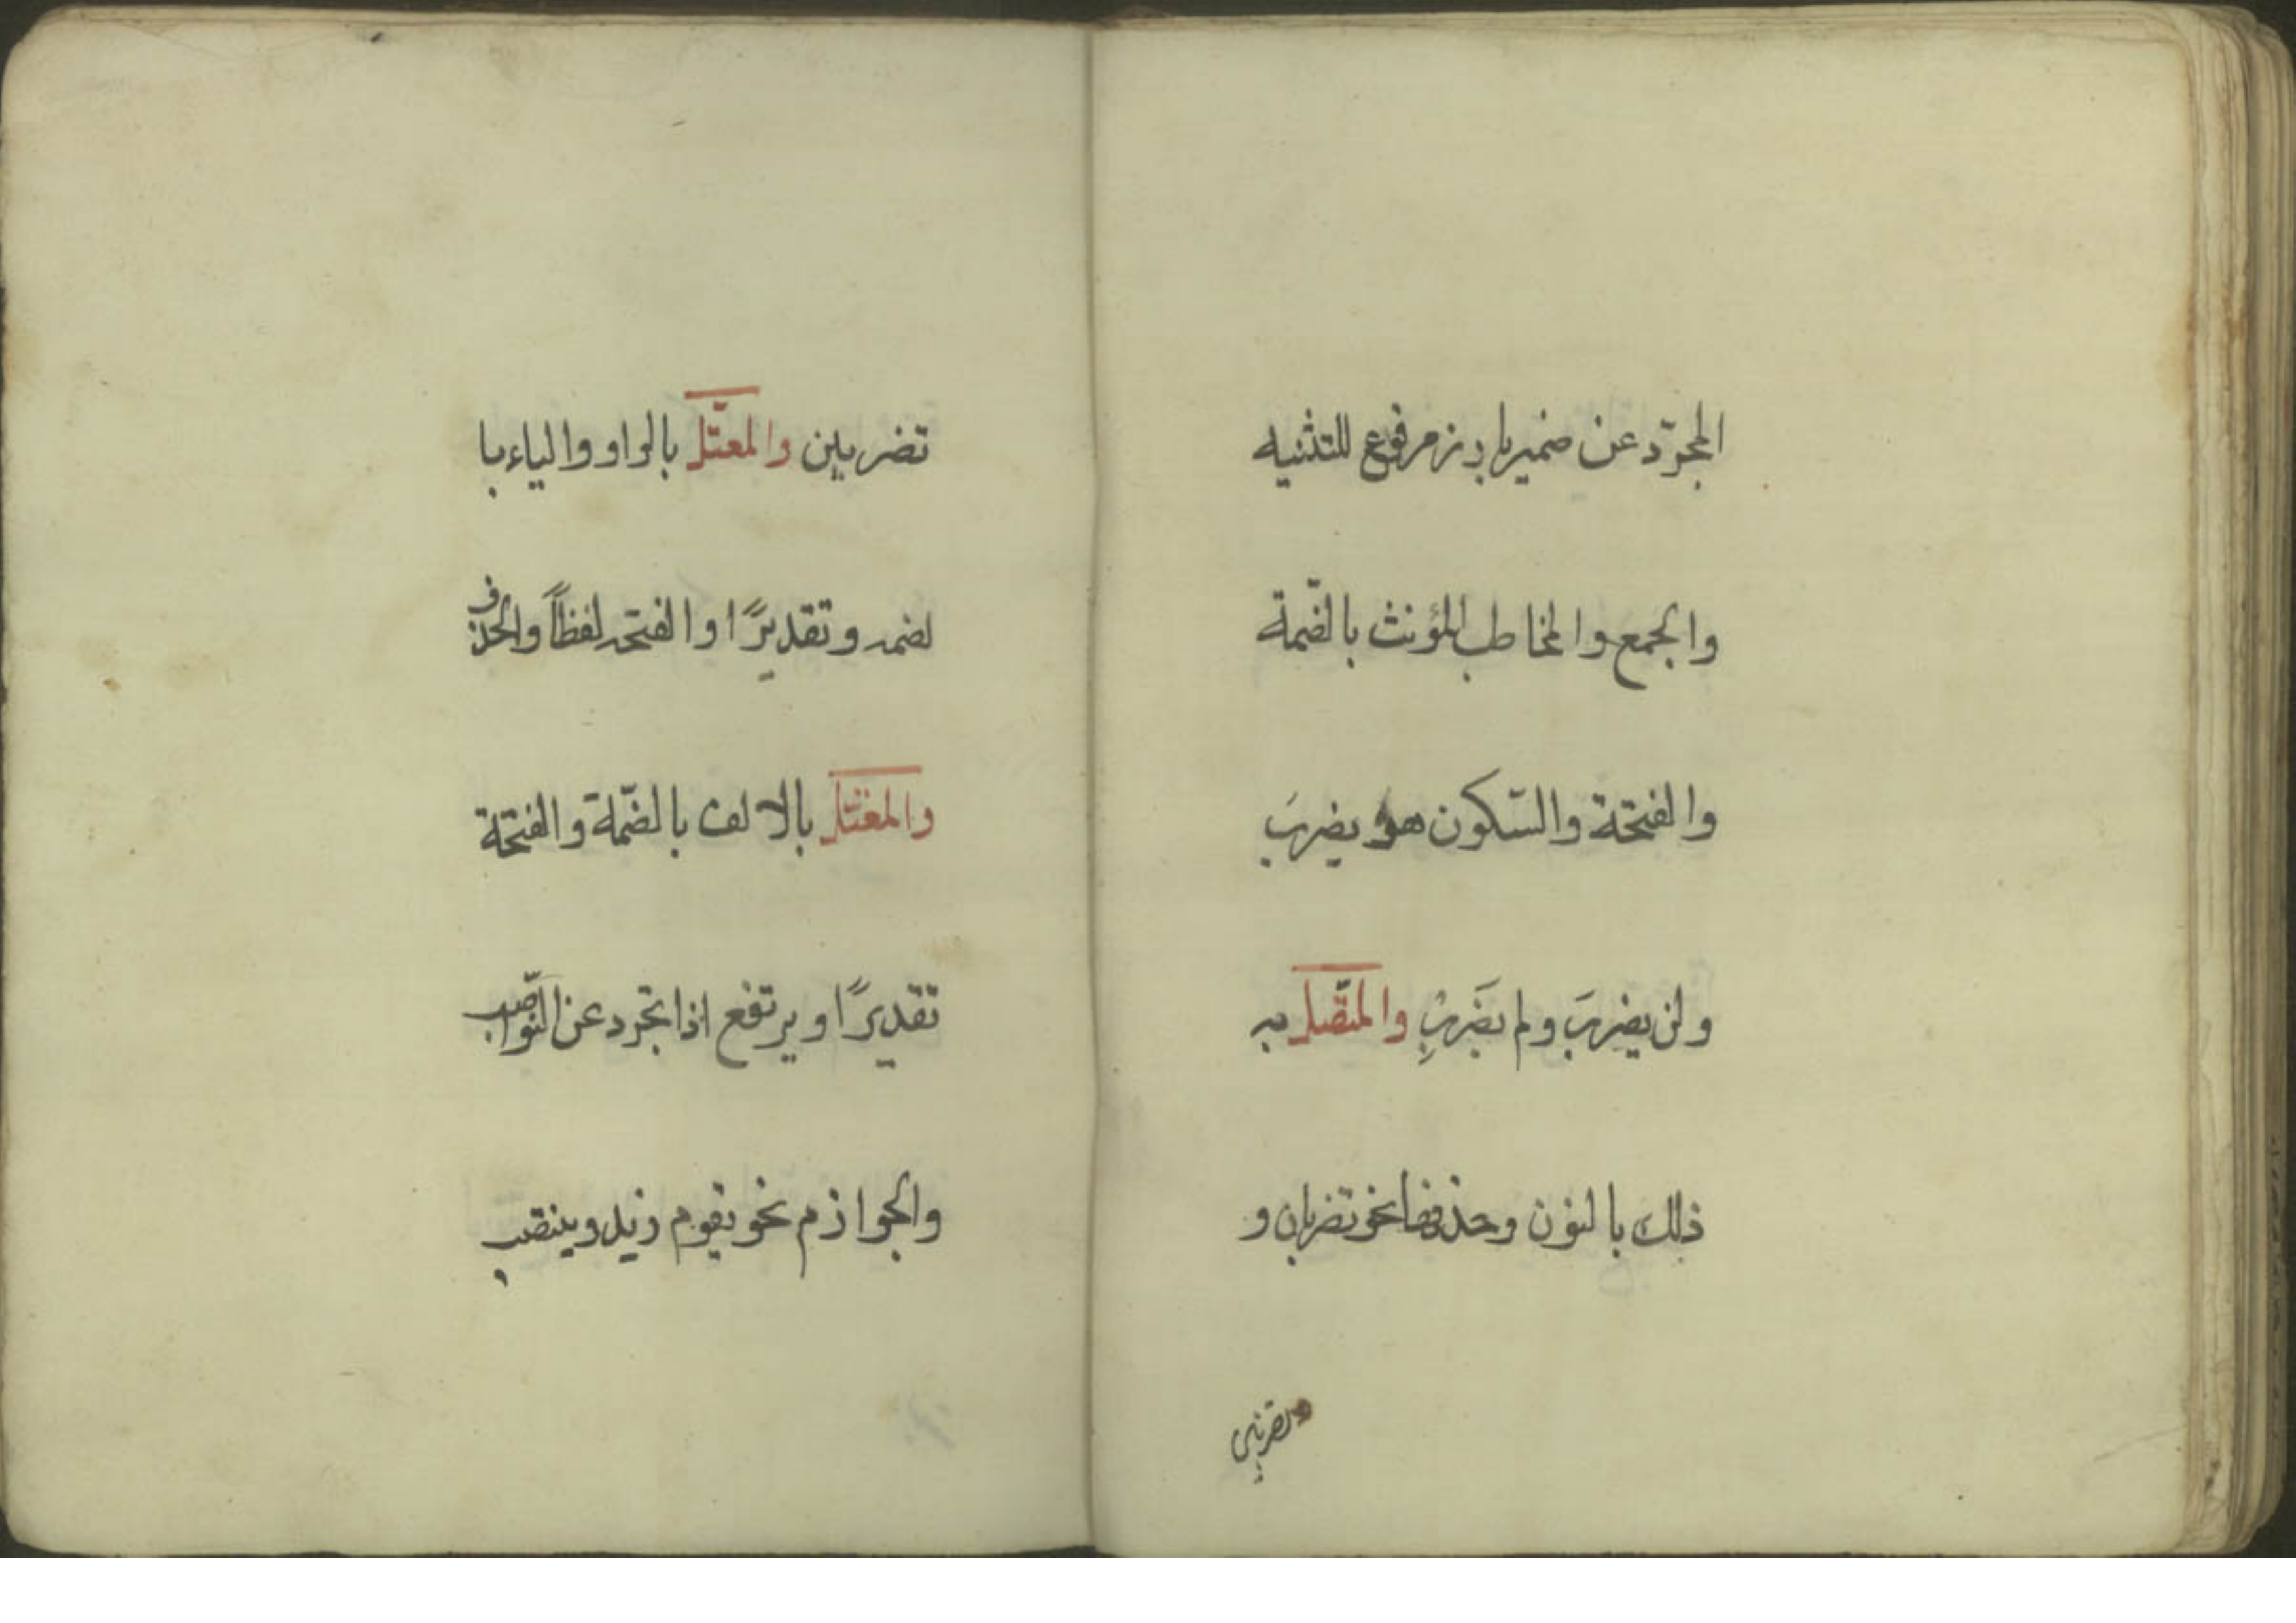 المجرّد عن ضمير بارز مرفوع للتثنيه
والجمع والمخاطب المؤنث بالضّمة
والفتحة والسّكون هو يضربَ
ولن يضربَ ولم يضَربْ والمتّصل به
ذلك بالنون وحذفها نحو تضربان و
تضربين والمعتّل بالواو والياء با
لضمه وتقديرًا والفتحه لفظاً والحذف
والمعتل بالالف بالضّمة والفتحة
تقديرًا ويرتفع اذا تجرد عن النّواصب
والجوازم نحو يقوم زيد وينتصب